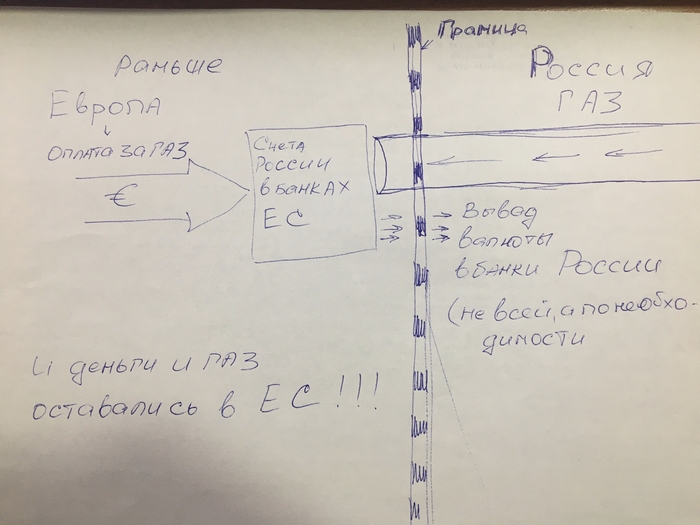 Раньше
Европа
ОПЛАТА ЗА ГАЗ
€
Счета
России
в банках
ЕС
Граница
Россия
ГАЗ
Вывад
валюты
в банки России
(не всей, а по необхо-
димости
И деньги и ГАЗ
оставались в ЕС!!!